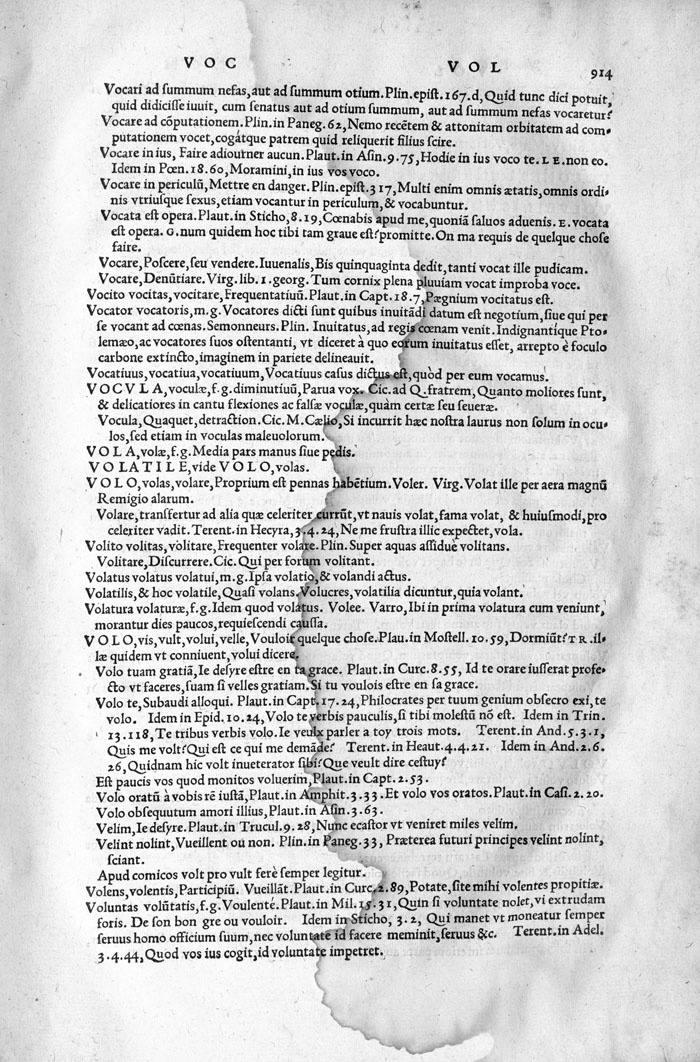 VOC VOL 914
Vocari ad ſummum nefas, aut ad ſummum otium. Plin. epiſt. 167. d, Quid tunc dici potuit,
quid didiciſſe iuuit, cum ſenatus aut ad otium ſummum, aut ad ſummum nefas vocaretur?
Vocare ad cõputationem. Plin. in Paneg. 62, Nemo recẽtem & attonitam orbitatem ad com-
putationem vocet, cogátque patrem quid reliquerit filius ſcire.
Vocare in ius, Faire adiourner aucun. Plaut. in Aſin. 9. 75, Hodie in ius voco te. LE. non eo.
Idem in Pœn. 18. 60, Moramini, in ius vos voco.
Vocare in periculũ, Mettre en danger. Plin. epiſt. 317, Multi enim omnis ætatis, omnis ordi-
nis vtriuſque ſexus, etiam vocantur in periculum, & vocabuntur.
Vocata eſt opera. Plaut. in Sticho, 8. 19, Cœnabis apud me, quoniã ſaluos aduenis. E. vocata
eſt opera. G. num quidem hoc tibi tam graue eſt? promitte. On ma requis de quelque choſe
faire.
Vocare, Poſcere, ſeu vendere. Iuuenalis, Bis quinquaginta dedit, tanti vocat ille pudicam.
Vocare, Denũtiare. Virg. lib. 1. georg. Tum cornix plena pluuiam vocat improba voce.
Vocito vocitas, vocitare, Frequentatiuũ. Plaut. in Capt. 18. 7, Pægnium vocitatus eſt.
Vocator vocatoris, m. g. Vocatores dicti ſunt quibus inuitãdi datum eſt negotium, ſiue qui per
ſe vocant ad cœnas. Semonneurs. Plin. Inuitatus, ad regis cœnam venit. Indignantíque Pto-
lemæo, ac vocatores ſuos oſtentanti, vt diceret à quo eorum inuitatus eſſet, arrepto è foculo
carbone extincto, imaginem in pariete delineauit.
Vocatiuus, vocatiua, vocatiuum, Vocatiuus caſus dictus eſt, quòd per eum vocamus.
VOCVLA, voculæ, f. g. diminutiuũ, Parua vox. Cic. ad Q. fratrem, Quanto moliores ſunt,
& delicatiores in cantu flexiones ac falſæ voculæ, quàm certæ ſeu ſeueræ.
Vocula, Quaquet, detraction. Cic. M. Cælio, Si incurrit hæc noſtra laurus non ſolum in ocu-
los, ſed etiam in voculas maleuolorum.
VOLA, volæ, f. g. Media pars manus ſiue pedis.
VOLATILE, vide VOLO, volas.
VOLO, volas, volare, Proprium eſt pennas habẽtium. Voler. Virg. Volat ille per aera magnũ
Remigio alarum.
Volare, tranſfertur ad alia quæ celeriter currũt, vt nauis volat, fama volat, & huiuſmodi, pro
celeriter vadit. Terent. in Hecyra, 3. 4. 24, Ne me fruſtra illic expectet, vola.
Volito volitas, volitare, Frequenter volare. Plin. Super aquas aſſiduè volitans.
Volitare, Diſcurrere. Cic. Qui per forum volitant.
Volatus volatus volatui, m. g. Ipſa volatio, & volandi actus.
Volatilis, & hoc volatile, Quaſi volans. Volucres, volatilia dicuntur, quia volant.
Volatura volaturæ, f. g. Idem quod volatus. Volee. Varro, Ibi in prima volatura cum veniunt,
morantur dies paucos, requieſcendi cauſſa.
VOLO, vis, vult, volui, velle, Vouloir quelque choſe. Plau. in Moſtell. 10. 59, Dormiũt? TR. il-
læ quidem vt conniuent, volui dicere.
Volo tuam gratiã, Ie deſyre eſtre en ta grace. Plaut. in Curc. 8. 55, Id te orare iuſſerat profe-
cto vt faceres, ſuam ſi velles gratiam. Si tu voulois eſtre en ſa grace.
Volo te, Subaudi alloqui. Plaut. in Capt. 17. 24, Philocrates per tuum genium obſecro exi, te
volo. Idem in Epid. 10. 24, Volo te verbis pauculis, ſi tibi moleſtũ nõ eſt. Idem in Trin.
13. 118, Te tribus verbis volo. Ie veulx parler a toy trois mots. Terent. in And. 5. 3. 1,
Quis me volt? Qui eſt ce qui me demãde? Terent. in Heaut. 4. 4. 21. Idem in And. 2. 6.
26, Quidnam hic volt inueterator ſibi? Que veult dire ceſtuy?
Eſt paucis vos quod monitos voluerim, Plaut. in Capt. 2. 53.
Volo oratũ à vobis rẽ iuſtã, Plaut. in Amphit. 3. 33. Et volo vos oratos. Plaut. in Caſi. 2. 20.
Volo obſequutum amori illius, Plaut. in Aſin. 3. 63.
Velim, Ie deſyre. Plaut. in Trucul. 9. 28, Nunc ecaſtor vt veniret miles velim.
Velint nolint, Vueillent ou non. Plin. in Paneg. 33, Præterea futuri principes velint nolint,
ſciant.
Apud comicos volt pro vult ferè ſemper legitur.
Volens, volentis, Participiũ. Vueillãt. Plaut. in Curc. 2. 89, Potate, ſite mihi volentes propitiæ.
Voluntas volũtatis, f. g. Voulenté. Plaut. in Mil. 15. 31, Quin ſi voluntate nolet, vi extrudam
foris. De ſon bon gre ou vouloir. Idem in Sticho, 3. 2, Qui manet vt moneatur ſemper
ſeruus homo officium ſuum, nec voluntate id facere meminit, ſeruus &c. Terent. in Adel.
3. 4. 44, Quod vos ius cogit, id voluntate impetret.